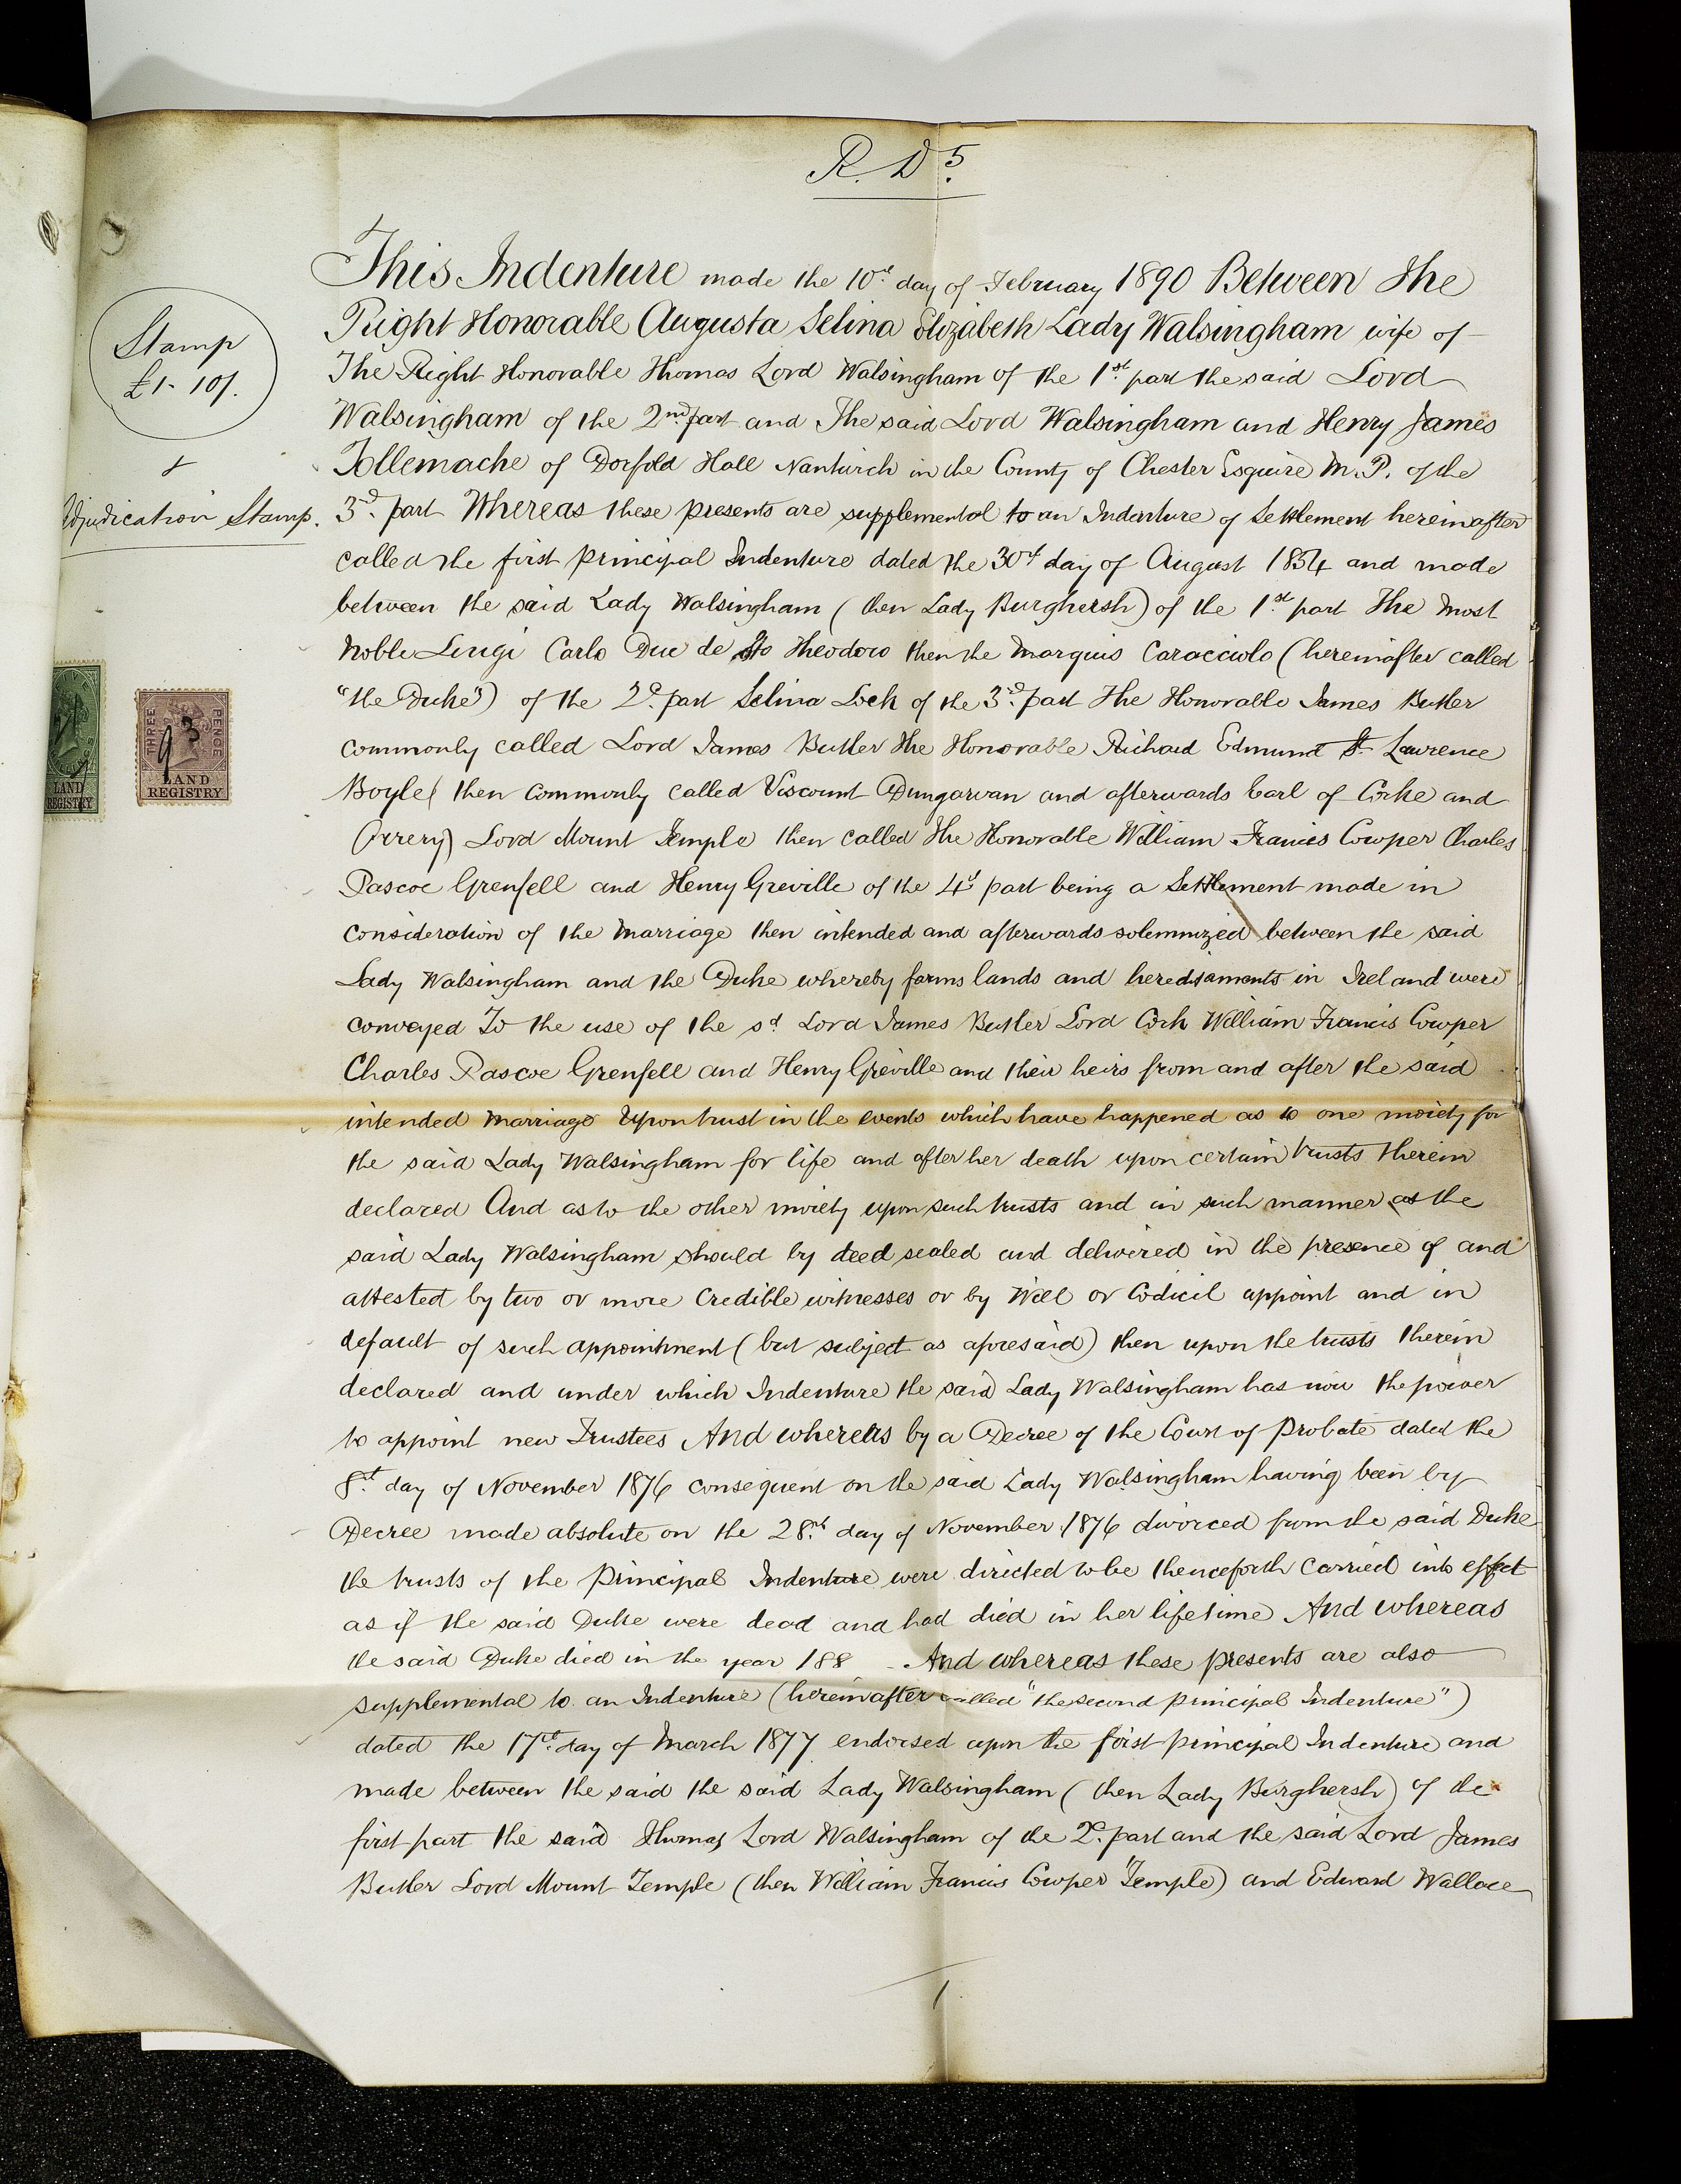 R. D 5.
This Indenture made the 10th day of February 1890 Between The
Right Honorable Augusta Selina Elizabeth Lady Walsingham wife of
The Right Honorable Thomas Lord Walsingham of the 1st part the said Lord
Walsingham of the 2nd part and The said Lord Walsingham and Henry James
Tollemache of Dorfold Hall Nantwich in the County of Chester Esquire M.P. of the
3rd part Whereas these presents are supplemental to an Indenture of Settlement hereinafter
called the first principal Indenture dated the 30th day of August 1854 and made
between the said Lady Walsingham (then Lady Burghersh) of the 1st part The Most
Noble Luigi Carlo Duc de Sto Theodoro then the Marquis Caracciolo (hereinafter called
"the Duke") of the 2d part Selina Loch of the 3rd part The Honorable James Butler
commonly called Lord James Butler The Honorable Richard Edmund St Lawrence
Boyle (then commonly called Viscount Dungarvan and afterwards Earl of Corke and
Orrery) Lord Mount Temple then called The Honorable William Francis Cowper Charles
Pascoe Grenfell and Henry Greville of the 4th part being a Settlement made in
consideration of the Marriage then intended and afterwards solemnized between the said
Lady Walsingham and the Duke whereby farms lands and hereditaments in Ireland were
conveyed To the use of the sd Lord James Butler Lord Cork William Francis Cowper
Charles Pascoe Grenfell and Henry Greville and their heirs from and after the said
intended Marriage Upon trust in the events which have happened as to one moiety for
the said Lady Walsingham for life and after her death upon certain trusts therein
declared And as to the other moiety upon such trusts and in such manner as the
said Lady Walsingham should by deed sealed and delivered in the presence of and
attested by two or more Credible witnesses or by Will or Codicil appoint and in
default of such appointment (but subject as aforesaid) then upon the trusts therein
declared and under which Indenture the said Lady Walsingham has now the power
to appoint new Trustees And whereas by a Decree of the Court of Probate dated the
8th day of November 1876 consequent on the said Lady Walsingham having been by
Decree made absolute on the 28th day of November 1876 divorced from the said Duke
the trusts of the Principal Indenture were directed to be thenceforth carried into effect
as if the said Duke were dead and had died in her lifetime And whereas
the said Duke died in the year 188 And whereas these presents are also
supplemental to an Indenture (hereinafter called "the second principal Indenture")
dated the 17th day of March 1877 endorsed upon the first principal Indenture and
made between the said the said Lady Walsingham (then Lady Burghersh) of the
first part the said Thomas Lord Walsingham of the 2d part and the said Lord James
Butler Lord Mount Temple (then William Francis Cowper Temple) and Edward Wallace
1
Stamp
£1-10/.
&
Adjudication Stamp.
LAND
REGISTRY
THREE PENCE
93
LAND
REGISTRY